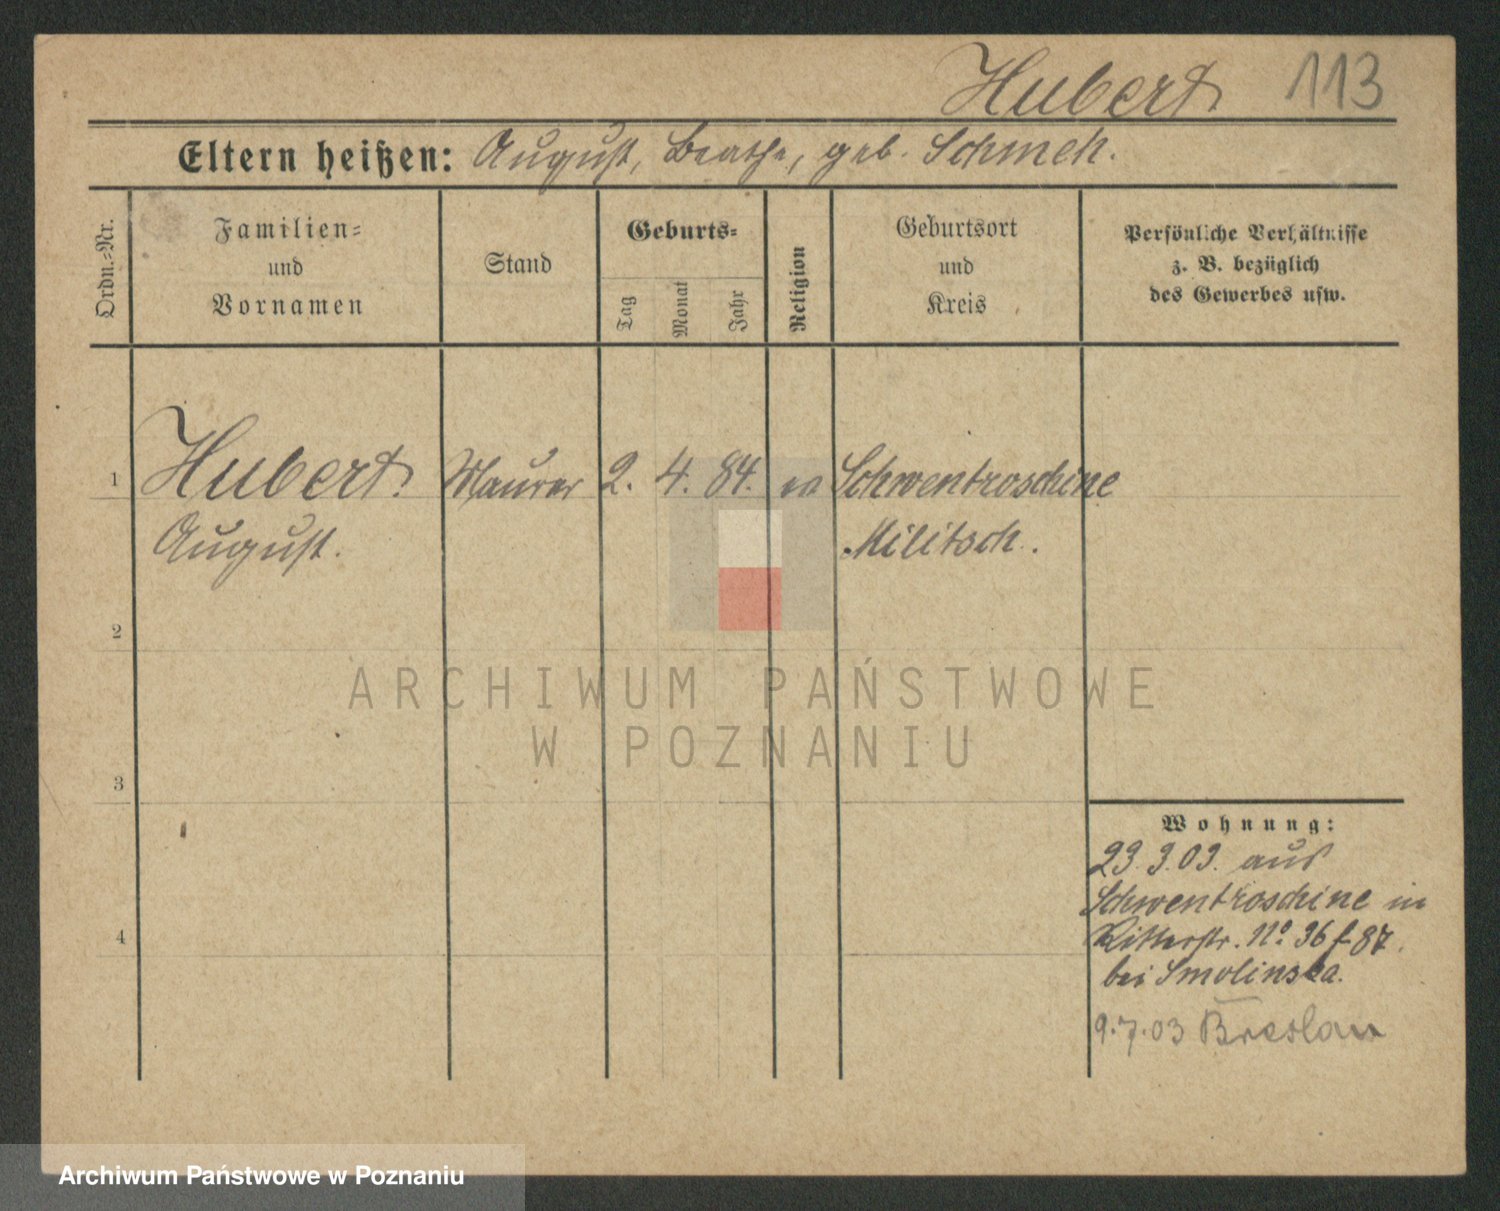 Hubert 113
Eltern heißen: August, Beathe, geb. Schmeh.
Ordn.=Nr.
Familien=
und
Vornamen
Stand
Geburts=
Tag
Monat
Jahr
Religion
Geburtsort
und
Kreis
Persönliche Verhältnisse
z. B. bezüglich
des Gewerbes usw.
1 Hubert Maurer 2. 4. 84. ev Schwentroschine
August. Militsch.
2
ARCHIWUM PAŃSTWOWE
W POZNANIU
3
Wohnung:
23.3.03. aus
Schwentroschine in
4 Ritterstr. No. 36 f. 87.
bei Smolinska.
9.7.03 Breslau
Archiwum Państwowe w Poznaniu